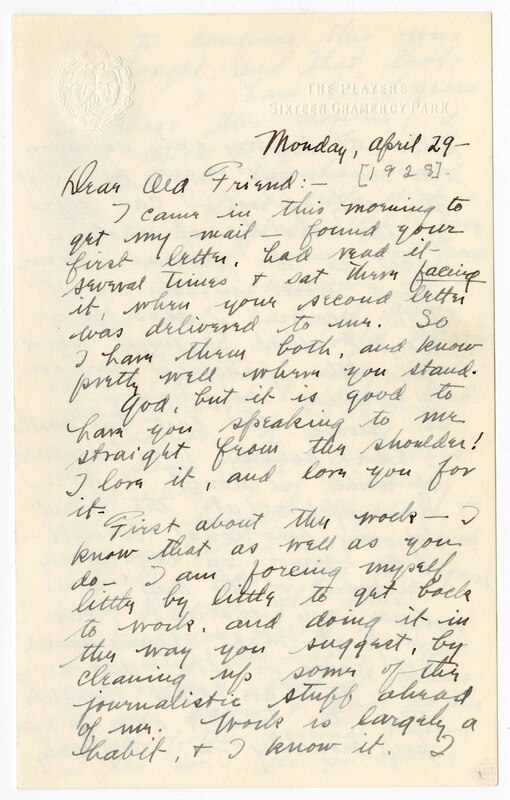 THE PLAYERS
SIXTEEN GRAMERCY PARK
Monday, April 29—
[1928].
Dear Old Friend:—
I came in this morning to
get my mail — found your
first letter, had read it
several times & sat there facing
it, when your second letter
was delivered to me. So
I have them both, and know
pretty well where you stand.
God, but it is good to
have you speaking to me
straight from the shoulder!
I love it, and love you for
it.
First about the work — I
know that as well as you
do — I am forcing myself
little by little to get back
to work, and doing it in
the way you suggest, by
cleaning up some of the
journalistic stuff ahead
of me. Work is largely a
habit, & I know it. I